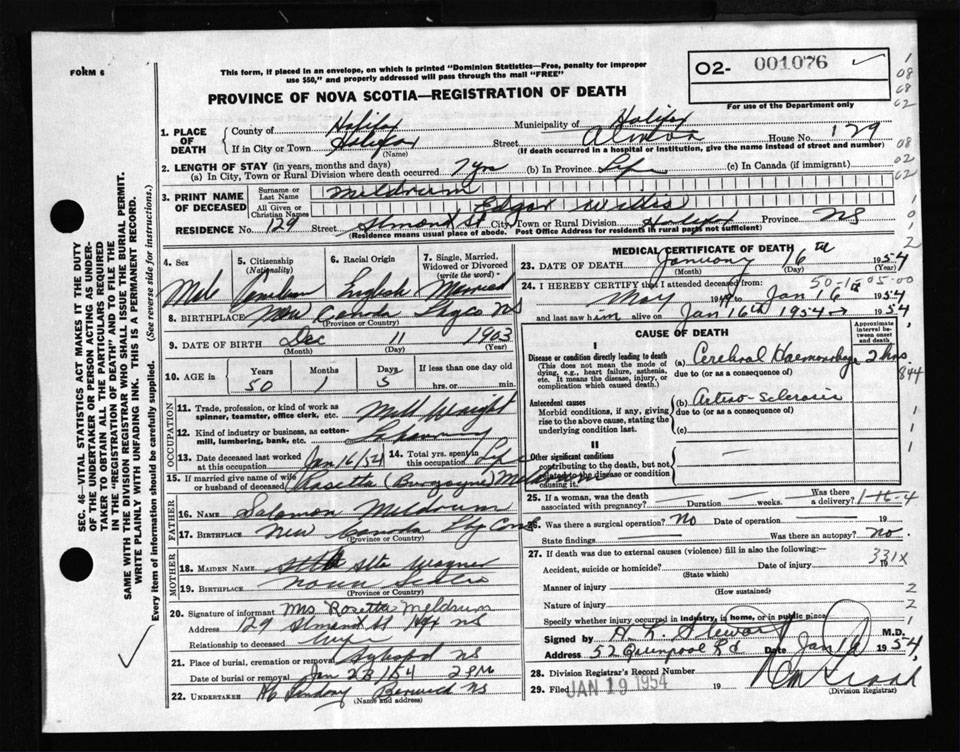 FORM 6
This form, if placed in an envelope, on which is printed "Dominion Statistics—Free, penalty for improper
use $50," and properly addressed will pass through the mail "FREE"
O2- 001076 ✓
For use of the Department only
PROVINCE OF NOVA SCOTIA—REGISTRATION OF DEATH
1. PLACE OF DEATH
County of Halifax Municipality of Halifax
If in City or Town Halifax Street House No. 129
(Name) (If death occurred in a hospital or institution, give the name instead of street and number)
2. LENGTH OF STAY (in years, months and days)
(a) In City, Town or Rural Division where death occurred 7 yrs (b) In Province Life (c) In Canada (if immigrant)
3. PRINT NAME OF DECEASED
Surname or Last Name Meldrum
All Given or Christian Names Edgar Willis
RESIDENCE No. 129 Street Almond St City, Town or Rural Division Halifax Province NS
(Residence means usual place of abode. Post Office Address for residents in rural parts not sufficient)
4. Sex Male
5. Citizenship (Nationality) Canadian
6. Racial Origin English
7. Single, Married, Widowed or Divorced (write the word) Married
8. BIRTHPLACE New Canada NS
(Province or Country)
9. DATE OF BIRTH Dec 11 1903
(Month) (Day) (Year)
10. AGE Years 50 Months 1 Days 5 If less than one day old
hrs. or min.
OCCUPATION
11. Trade, profession, or kind of work as spinner, teamster, office clerk, etc. Mill Wright
12. Kind of industry or business, as cotton-mill, lumbering, bank, etc.
13. Date deceased last worked at this occupation Jan 16/54 14. Total yrs. spent in this occupation Life
15. If married give name of wife or husband of deceased Rosetta (Burgoyne) Meldrum
FATHER
16. NAME Salomon Meldrum
17. BIRTHPLACE New Canada
(Province or Country)
MOTHER
18. MAIDEN NAME Etta Wagner
19. BIRTHPLACE Nova Scotia
(Province or Country)
20. Signature of informant Mrs Rosetta Meldrum
Address 129 Almond St Hfx NS
Relationship to deceased Wife
21. Place of burial, cremation or removal NS
Date of burial or removal Jan 23/54 2 PM
22. UNDERTAKER Berwick NS
(Name and address)
MEDICAL CERTIFICATE OF DEATH
23. DATE OF DEATH January 16th 1954
(Month) (Day) (Year)
24. I HEREBY CERTIFY that I attended deceased from: 50-1-5 05.00
May 19 to Jan 16th 1954
and last saw him alive on Jan 16th 1954 1954
CAUSE OF DEATH
Approximate interval between onset and death
I
Disease or condition directly leading to death
(This does not mean the mode of dying, e.g., heart failure, asthenia, etc. It means the disease, injury, or complication which caused death.)
(a) Cerebral Haemorrhage 2 hrs.
due to (or as a consequence of) 844
Antecedent causes
Morbid conditions, if any, giving rise to the above cause, stating the underlying condition last.
(b) Arterio-Sclerosis
due to (or as a consequence of)
(c)
II
Other significant conditions
contributing to the death, but not related to the disease or condition causing it.
25. If a woman, was the death associated with pregnancy? Duration weeks. Was there a delivery? 1-16-4
26. Was there a surgical operation? No Date of operation 19
State findings Was there an autopsy? No.
27. If death was due to external causes (violence) fill in also the following:— 331X
Accident, suicide or homicide? Date of injury 19
(State which)
Manner of injury
(How sustained)
Nature of injury
Specify whether injury occurred in industry, in home, or in public place
Signed by H. L. Stewart M.D.
Address 52 Quinpool Rd Date Jan 1954
28. Division Registrar's Record Number
29. Filed JAN 19 1954
(Division Registrar)
SEC. 46—VITAL STATISTICS ACT MAKES IT THE DUTY
OF THE UNDERTAKER OR PERSON ACTING AS UNDER-
TAKER TO OBTAIN ALL THE PARTICULARS REQUIRED
IN THE "REGISTRATION OF DEATH" AND TO FILE THE
SAME WITH THE DIVISION REGISTRAR WHO SHALL ISSUE THE BURIAL PERMIT.
WRITE PLAINLY WITH UNFADING INK. THIS IS A PERMANENT RECORD.
Every item of information should be carefully supplied. (See reverse side for instructions.)